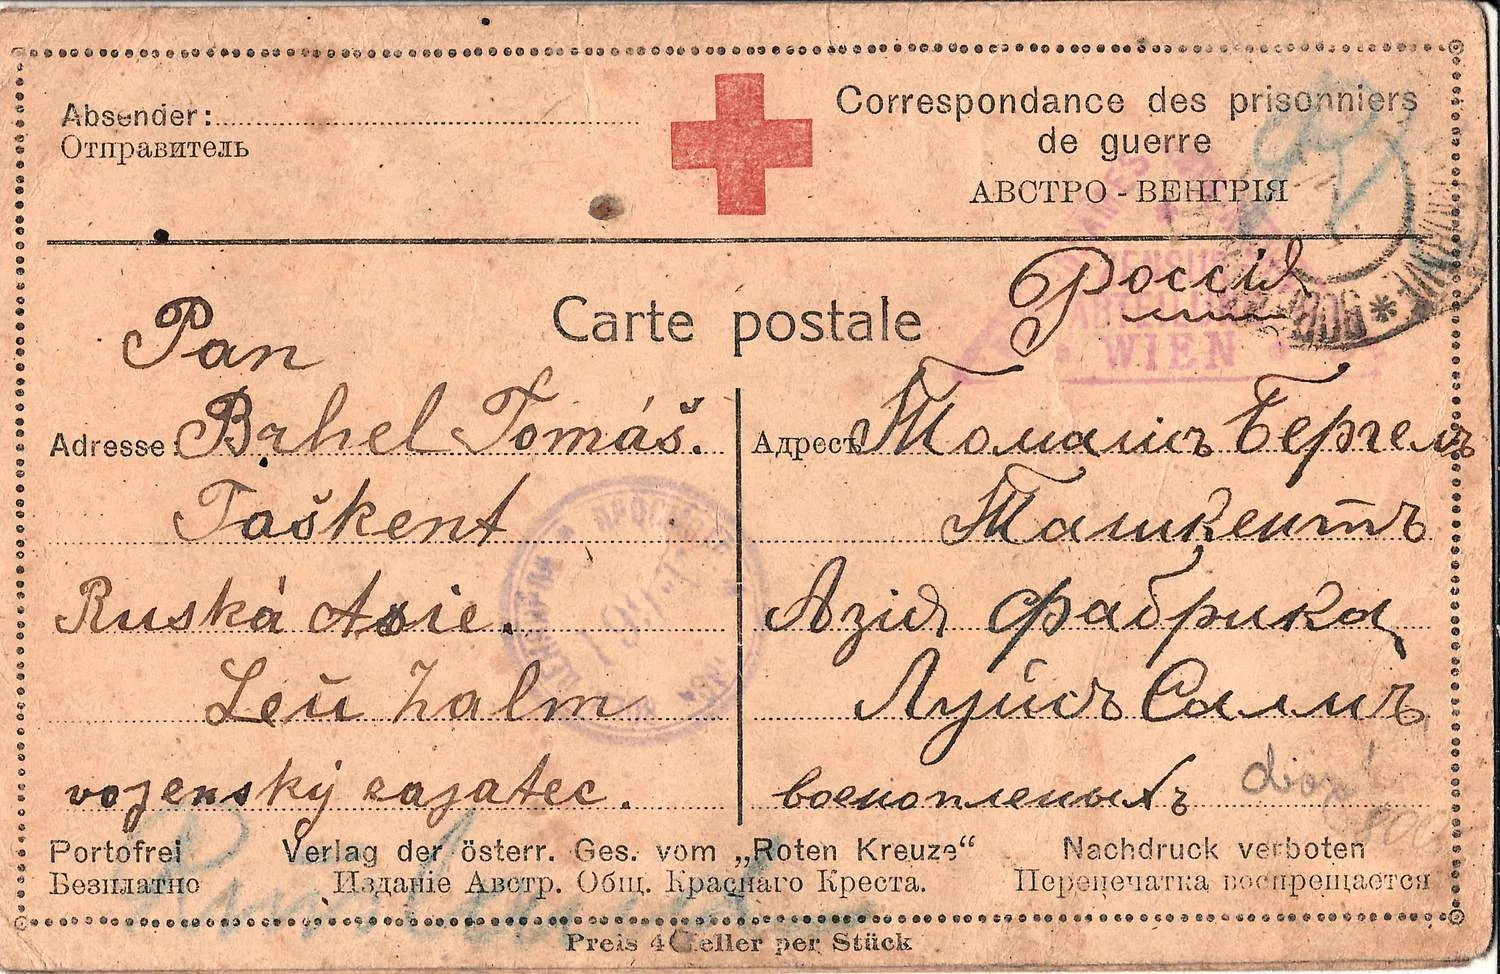 Absender:
Отправитель
Correspondance des prisonniers
de guerre
АВСТРО - ВЕНГРІЯ
Carte postale
Россія
CENSUR
ABTEILUNG
WIEN
Pan
Adresse: Brhel Tomáš.
Taškent
Ruská Asie.
Leu Zalm
vojenský zajatec.
Адресъ: Томашъ Бергелъ
Ташкентъ
Азія фабрика
Луйсъ Салмъ
военопленыхъ
Portofrei
Безплатно
Verlag der österr. Ges. vom „Roten Kreuze“
Изданіе Австр. Общ. Краснаго Креста.
Nachdruck verboten
Перепечатка воспрещается
Preis 4 Heller per Stück